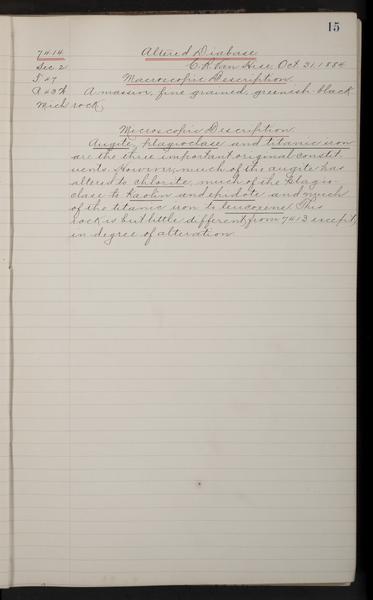 15
7414 Altered Diabase
Sec 2 C. R. Van Hise, Oct. 31, 1884
Macroscopic Description.
A massive, fine grained, greenish-black
Mich rock.
Microscopic Description.
Augite, plagioclase and titanic iron
are the three important original constit-
uents. However, much of the augite has
altered to chlorite, much of the plagio
clase to kaolin and epidote and much
of the titanic iron to leucoxene. This
rock is but little different from 7413 except,
in degree of alteration